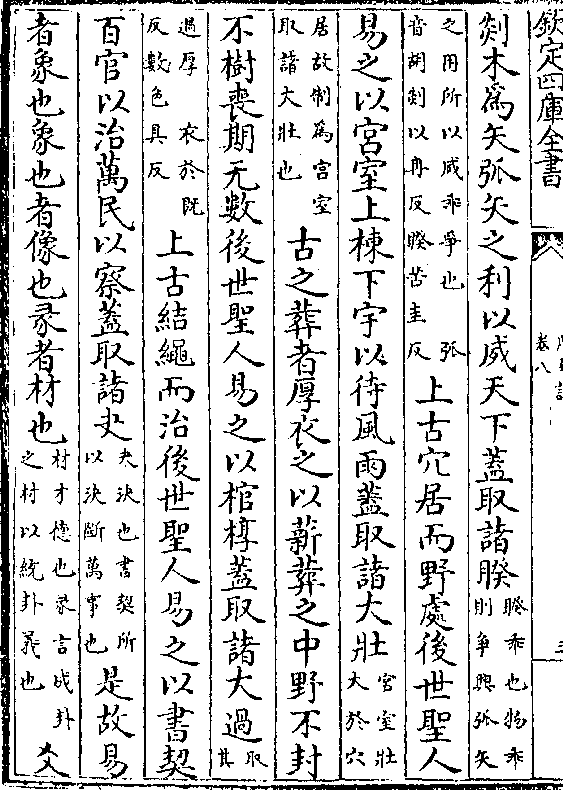 欽定四庫全書
卷八
剡木爲矢弧矢之利以威天下蓋取諸睽睽乖也物乖則爭興弧矢
之用所以威乖爭也弧音胡剡以冉反睽苦圭反上古穴居而野處後世聖人
易之以宮室上棟下宇以待風雨蓋取諸大壯宮室壯大於穴
居故制爲宮室取諸大壯也古之葬者厚衣之以薪葬之中野不封
不樹喪期无數後世聖人易之以棺椁蓋取諸大過取其
過厚衣於既反數色具反上古結繩而治後世聖人易之以書契
百官以治萬民以察蓋取諸夬夬決也書契所以決斷萬事也是故易
者象也象也者像也彖者材也材才德也彖言成卦之材以統卦義也爻